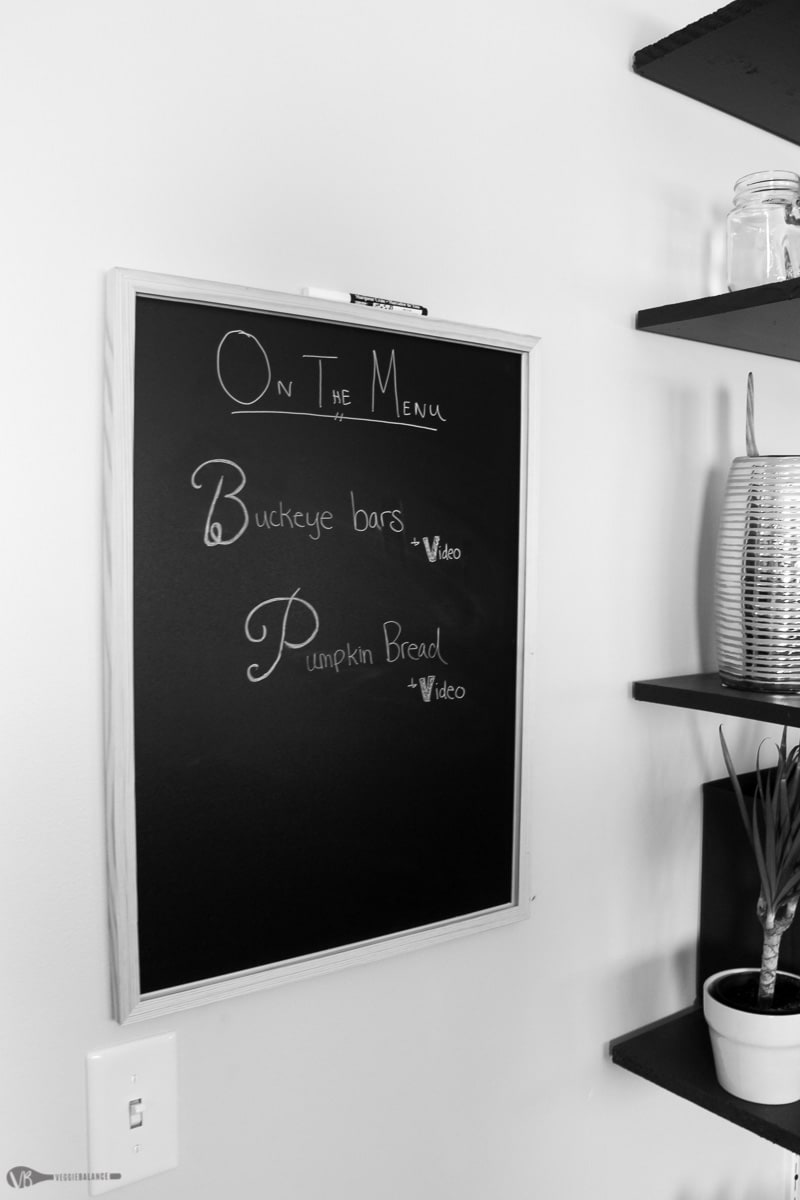 On The Menu
Buckeye bars
+ Video
Pumpkin Bread
+ Video
VB VEGGIEBALANCE